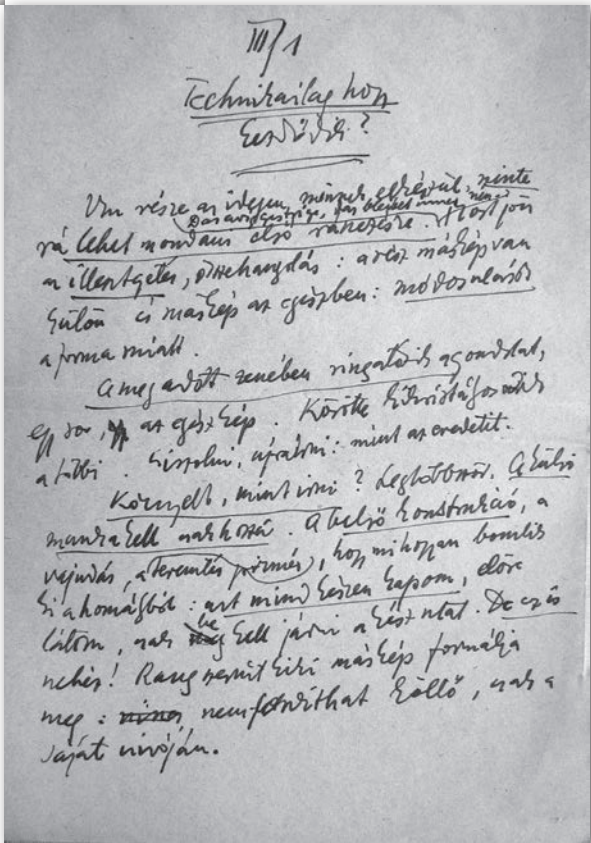 III/1
Technikailag hogy
kezdődik?
Van része az idegen, minek elkészül, szinte
rá lehet mondani első ránézésre. Most jön
az illesztgetés, összehangolás: a rész másképvan
külön és máskép az egészben: módosulások
a forma miatt.
A megadott zenében ringatózik a gondolat,
egy sor, az egész kép. Körötte kikristályosodik
a többi. Csiszolni, újraírni: mint az eredetit.
Könnyebb, mint írni? Legtöbbször. A külső
munka kell csak hozzá. A belső konstrukció, a
vajudás, a teremtés, hogy mi hogyan bomlik
ki a homályból: azt mind készen kapom, előre
látom, csak be kell járni a kész utat. De ez is
nehéz! Rang szerint kiki máskép formálja
meg: nem fordíthat költő, csak a
saját nivóján.